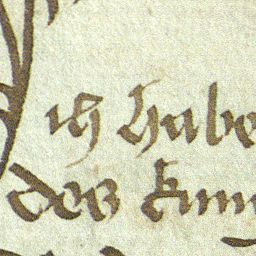 ich habe
des kun